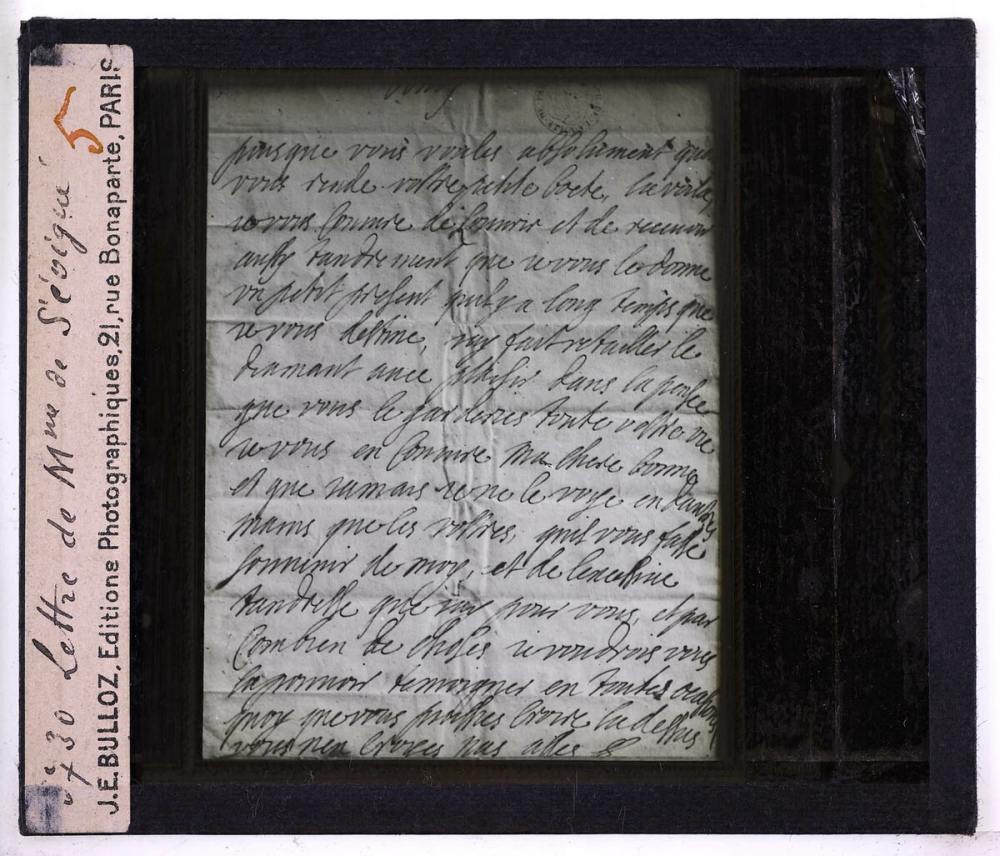 730 Lettre de Mme de Sévigné
5
J.E.BULLOZ, Editions Photographiques, 21, rue Bonaparte, PARIS
puisque vous voules absolument que
vous rende vostre petite boete, la voila
ie vous coniure de et de receuoir
aussy tandrement que ie vous le donne
vn petit present quil y a long temps que
ie vous destine, iay fait retailler le
diamant auec plaisir dans la pensee
que vous le garderies toute vostre vie
ie vous en coniure ma chere bonne
et que iamais ie ne le voye en dautres
mains que les vostres, quil vous fasse
souuenir de moy, et de lexcessiue
tandresse que iay pour vous, et par
combien de choses ie voudrois vous
la pouuoir temoigner en toutes ocasions
quoy que vous puissies croire la dessus
vous nen croyes pas asses